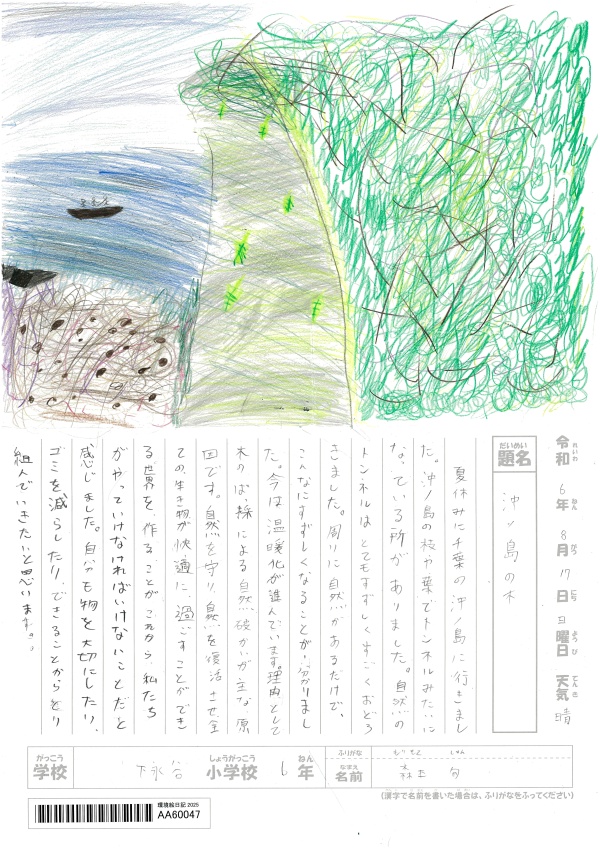 令和 6年 8月 17日 日曜日 天気 晴
れいわ ねん がつ にち ようび てんき
だいめい
題名 沖ノ島の木
夏休みに千葉の沖ノ島に行きまし
た。沖ノ島の枝や葉でトンネルみたいに
なっている所がありました。自然の
トンネルはとてもすずしくすごくおどろ
きました。周りに自然があるだけで、
こんなにすずしくなることが分かりまし
た。今は温暖化が進んでいます。理由として
木のばっ採による自然破かいが主な原
因です。自然を守り、自然を復活させ、全
ての生き物が快適に過ごすことができ
る世界を作ることがこれから私たち
がやっていけなければいけないことだと
感じました。自分も物を大切にしたり、
ゴミを減らしたり、できることからとり
組んでいきたいと思います。
がっこう しょうがっこう ねん
学校 小学校 6年
ふりがな
なまえ
名前
(漢字で名前を書いた場合は、ふりがなをふってください)
環境絵日記 2025
AA60047